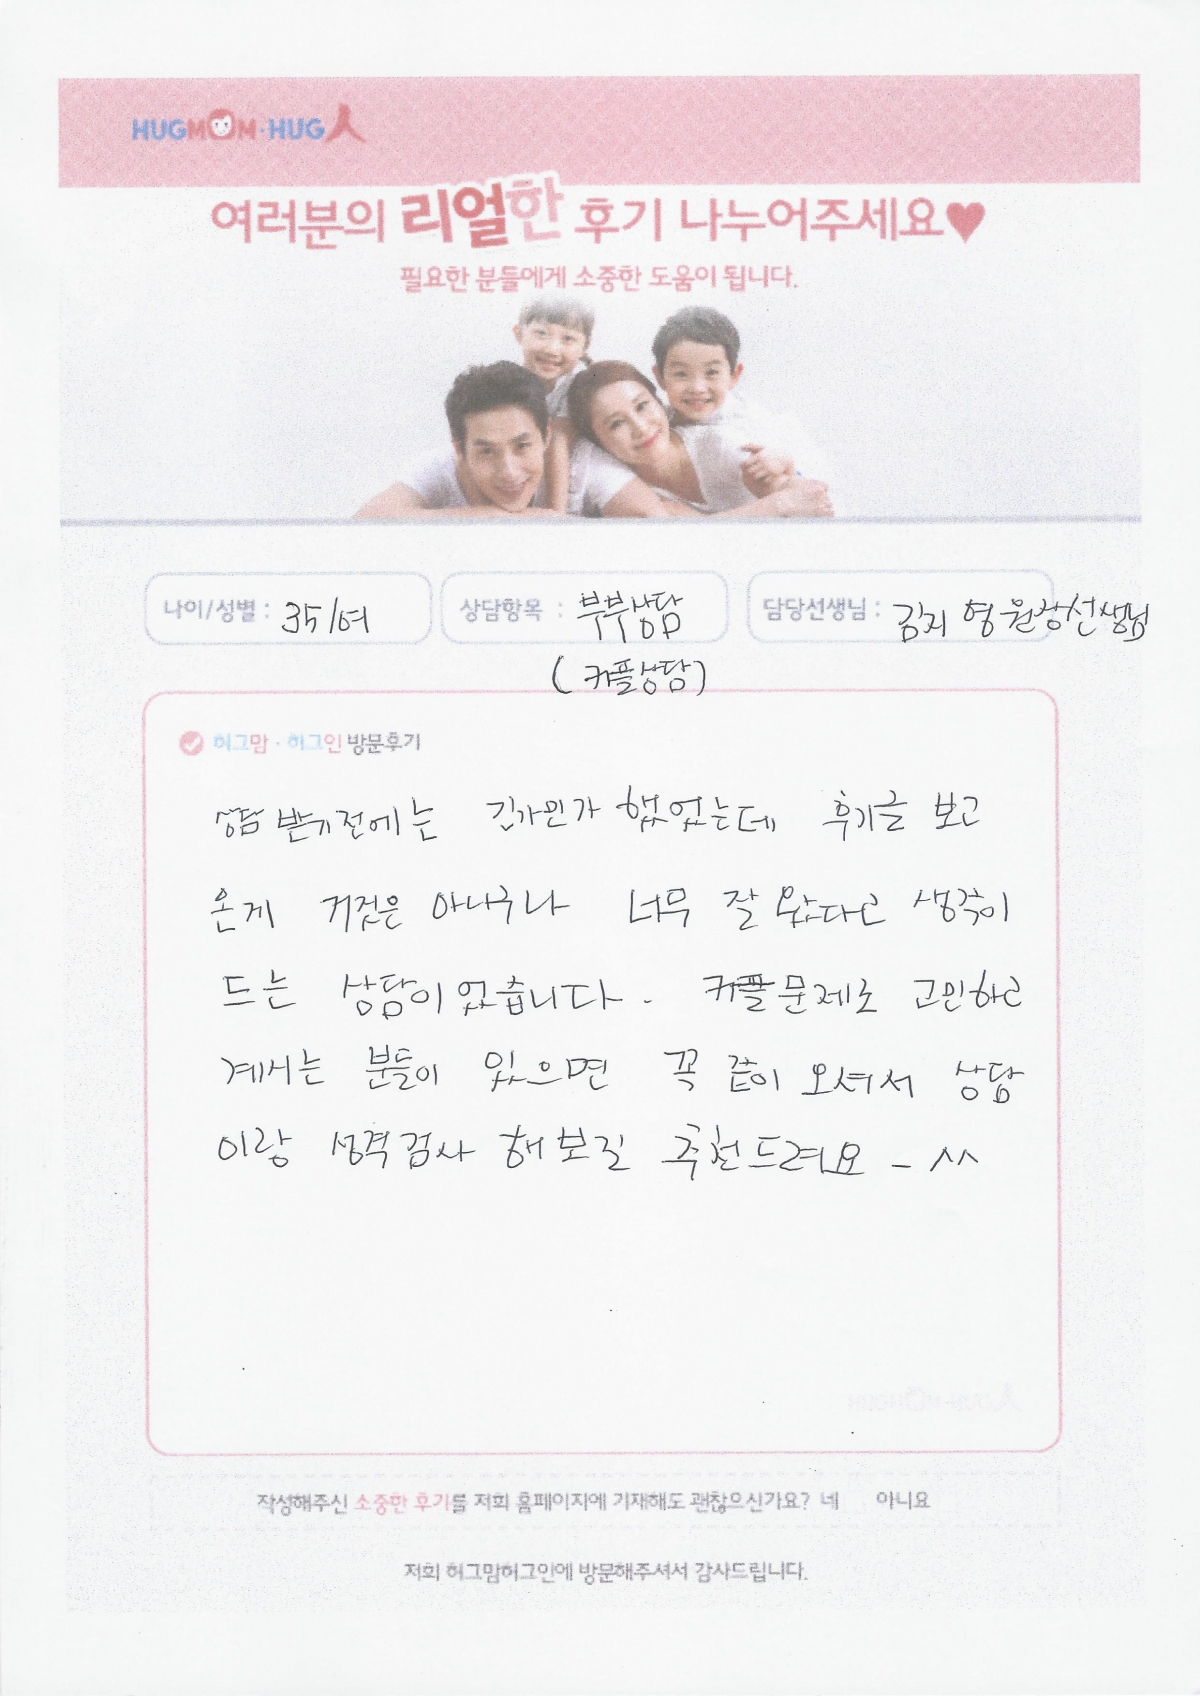 HUGMOM·HUG人
여러분의 리얼한 후기 나누어주세요♥
필요한 분들에게 소중한 도움이 됩니다.
나이/성별 : 35/여
상담항목 : 부부상담
(커플상담)
담당선생님 : 김지영원장선생님
허그맘·허그인 방문후기
상담 받기전에는 긴가민가 했었는데 후기글 보고
온게 거짓은 아니구나 너무 잘 왔다고 생각이
드는 상담이었습니다. 커플문제로 고민하고
계시는 분들이 있으면 꼭 같이 오셔서 상담
이랑 성격검사 해보길 추천드려요 - ^^
작성해주신 소중한 후기를 저희 홈페이지에 기재해도 괜찮으신가요? 네 아니요
저희 허그맘허그인에 방문해주셔서 감사드립니다.